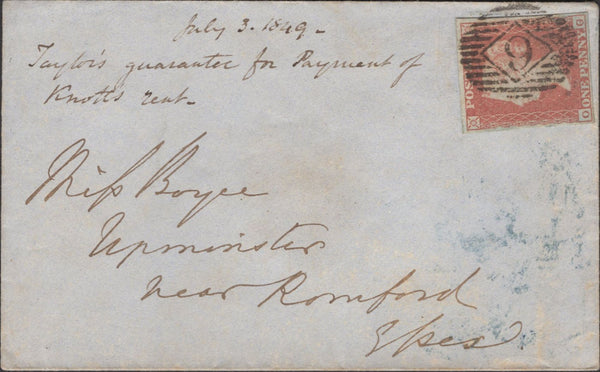 July 3. 1849-
Taylor's guarantee for Payment of
Knott's rent-
POS
ONE PENNY
O G
9
Miſs Boyce
Upminster
near Romford
Eſsex